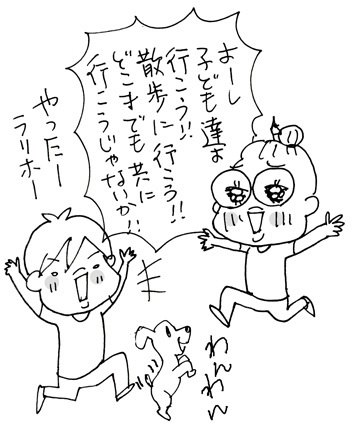 よーし
子ども達よ
行こう!!
散歩に行こう!!
どこまでも共に
行こうじゃないか!!
やったー
ラリホー
わんわん